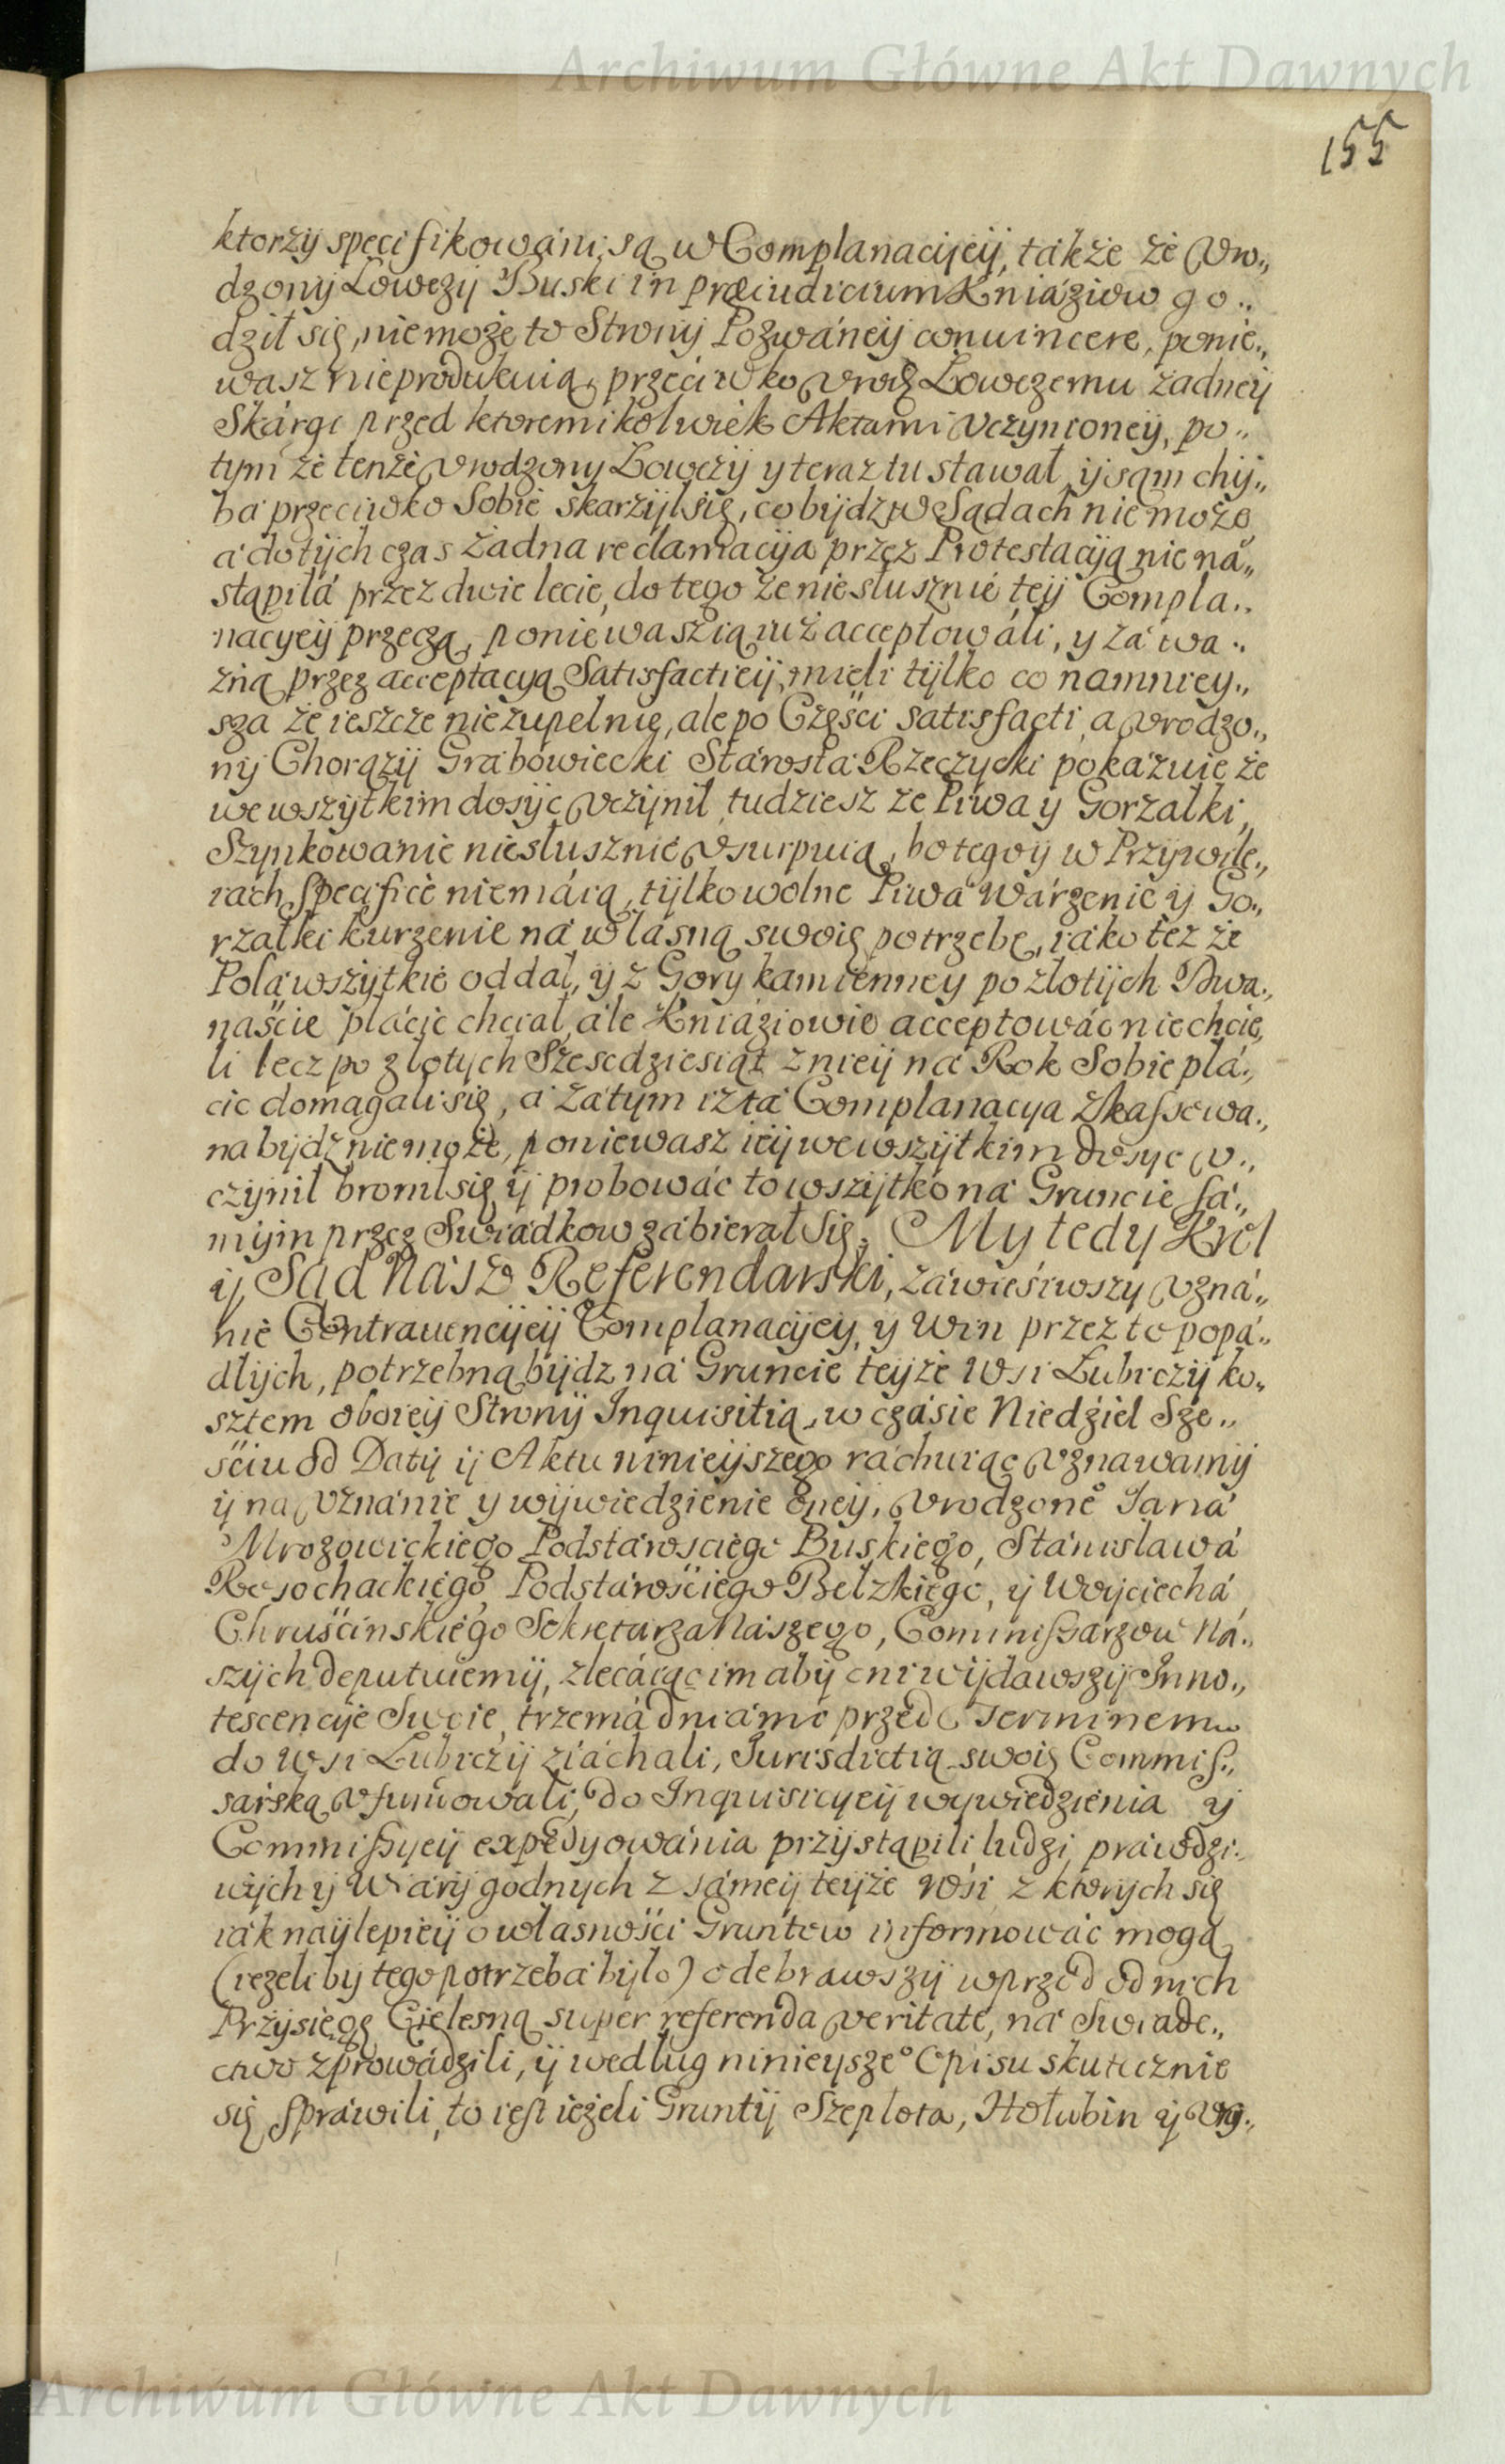 Archiwum Główne Akt Dawnych
155
ktorzy specifikowáni są w Complanacijeij, także że Vro„
dzony Łowczy Buski in præiudicium Kniáziow go„
dził się, nie może to Strony Pozwáneij conuincere, ponie„
wasz nieprodukuią przeciwko Vrodz Łowczemu żadneij
Skárgi przed ktoremikolwiek Aktami Vczynioney, po„
tym że tenże Vrodzony Łowczy y teraz tu stawał, ij sąm chy„
bá przeciwko Sobie skarżijł się, co bijdz w Sądach nie może
á do tijch czas żadna reclamacija przez Protestaciją nie ná„
stąpiłá przez dwie lecie, do tego że niesłusznie teij Compla„
nacyeij przeczą, poniewasz ią iuż acceptowáli, y zá wa„
żną przez acceptacyą Satisfactieij mieli tijlko co namniey„
sza że ieszcze nie zupełnie, ale po Części satisfacti, a Vrodzo„
nij Chorążij Grabowiecki Stárosta Rzeczycki pokázuie że
we wszytkim dosijc Vczijnił, tudziesz że Piwa y Gorzałki
Szynkowanie niesłusznie Vsurpuią, bo tego ij w Przijwile„
iach specifice nie máią, tijlko wolne Piwá Wárzenie ij Go„
rzałki kurzenie ná własną swoię potrzebę, iáko też że
Polá wszijtkie oddał, ij z Gory kamienney po złotijch Dwa„
naście płácic chciał, ále Kniáziowie acceptowác nie chcie„
li lecz po złotych Szescdziesiąt z nieij ná Rok Sobie płá„
cic domagali się, á zátym iż tá Complanacya zkassowa„
na bijdz nie może, poniewasz ieij we wszijtkim dosyc v„
czijnił bronił się ij probowác to wszijtko ná Gruncie sá„
mijm przez Swiadkow zábierał się. My tedy Krol
ij Sąd Nász Referendarski, záwieśiwszy Vzná„
nie Contrauencijeij Complanacijeij, y Win przez to popá„
dłijch, potrzebną bijdz ná Gruncie teijże Wsi Lubiczij ko„
sztem oboieij Stronij Inquisitią w czásie Niedźiel Sze„
śćiu od Datij ij Aktu ninieijszego ráchuiąc Vznawamij
ij na Vznánie y wijwiedzienie oneij, Vrodzone° Janá
Mrozowickiego Podstárosciego Buskiego, Stánisławá
Rosochackiego Podstárośćiego Bełzkiego, ij Woijciechá
Chruśćinskiego Sekretarza Nászego, Commissarzow Ná„
szijch deputuiemij, zlecáiąc im abij oni wijdawszij Inno„
tescencije Swoie, trzemá dniámi przed Terminem
do Wsi Lubiczij ziáchali, Jurisdictią swoię Commis„
sárską Vfundowáli, do Inquisicyeij wywiedzienia ij
Commissyeij expedyowánia przijstąpili ludzi práwdzi„
wijch ij Wiárij godnych z sámeij teijże Wśi z ktorych się
iák naijlepieij o własnośći Gruntow informowác mogą
(ieżeli by tego potrzebá bijło) odebrawszij wprzod od nich
Przijsięgę Cielesną super referenda veritate, ná Swiade„
ctwo zprowádzili, ij według ninieysze° Opisu skutecznie
się spráwili, to iest ieżeli Gruntij Szeplota, Hołubin ij
Archiwum Główne Akt Dawnych